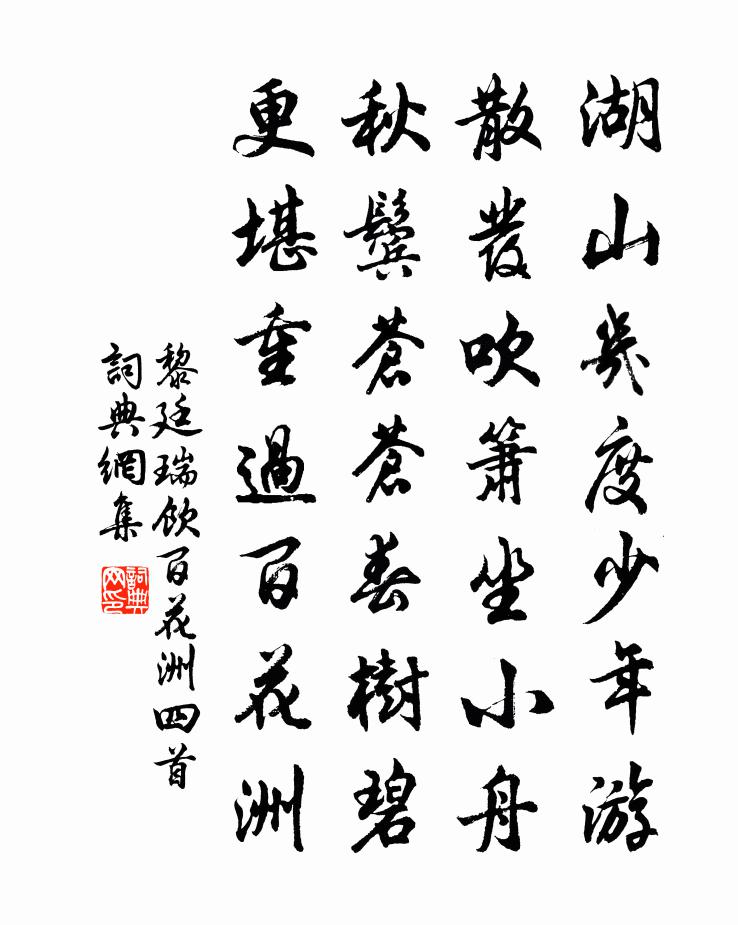 湖山幾度少年游
散發吹簫坐小舟
秋鬢蒼蒼春樹碧
更堪重過百花洲
黎廷瑞飲百花洲四首
詞典網集
詞典網印